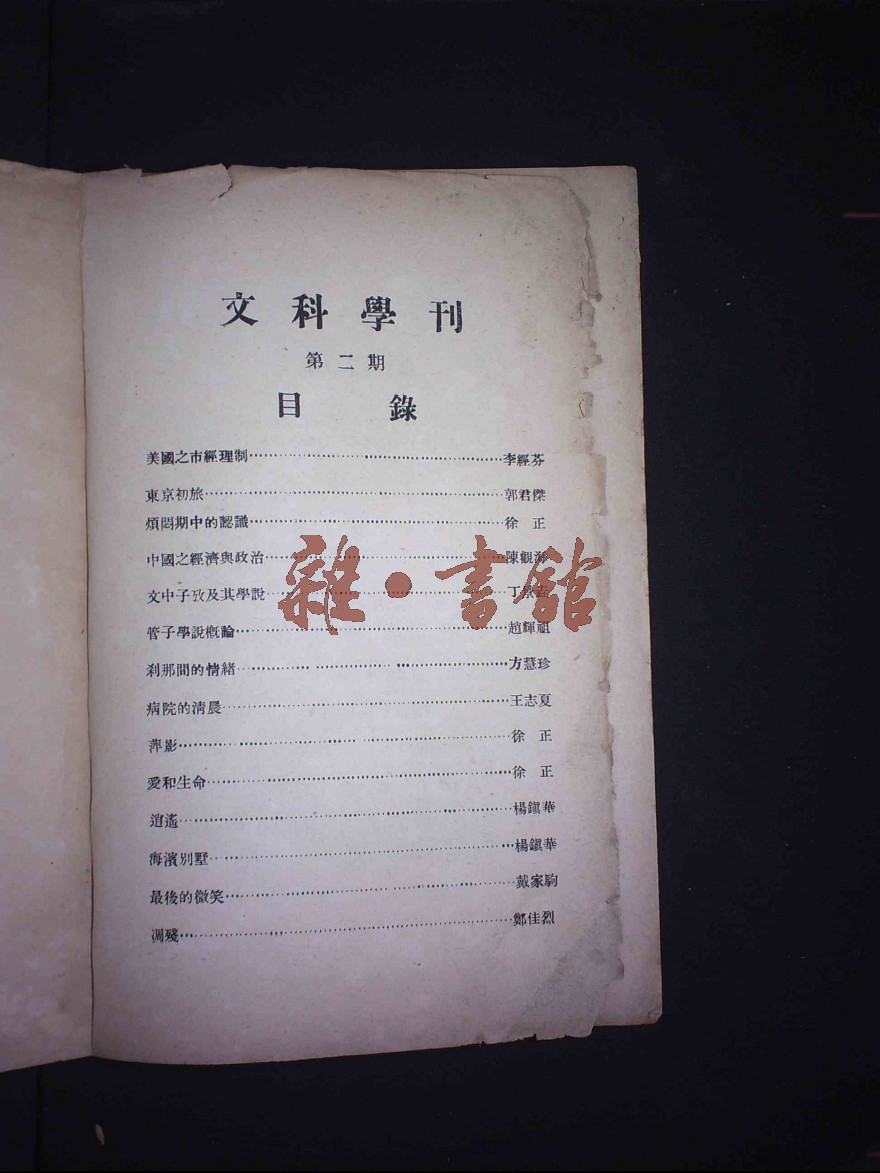 文科學刊
第二期
目錄
美國之市經理制 李經芬
東京初旅 郭君傑
煩悶期中的認識 徐正
中國之經濟與政治 陳觀海
文中子攷及其學說 丁
管子學說槪論 趙輝祖
刹那間的情緒 方慧珍
病院的淸晨 王志夏
萍影 徐正
愛和生命 徐正
逍遙 楊鎭華
海濱別墅 楊鎭華
最後的微笑 戴家駒
凋殘 鄭佳烈
雜·書館